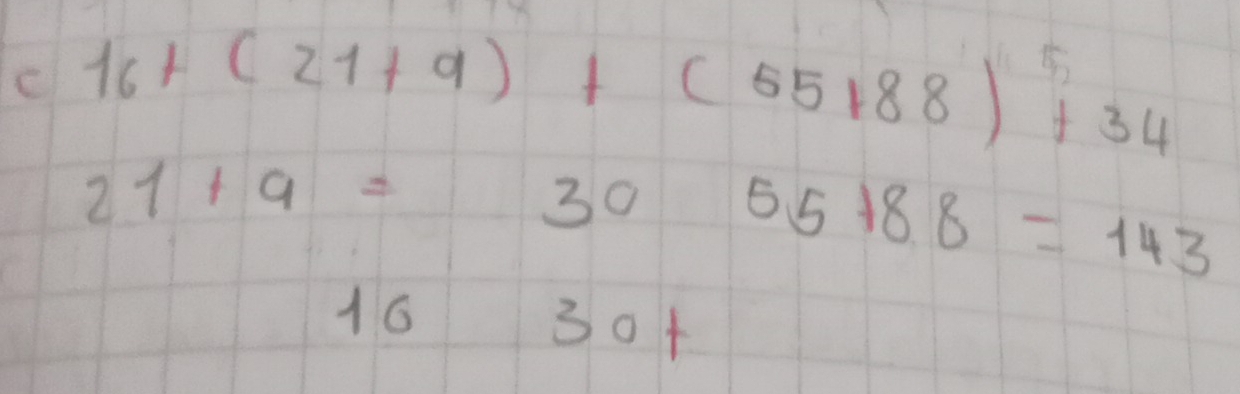 c 16+ (21+9) + (55+88) + 34
21+9 = 30 55+88 = 143
16 30+